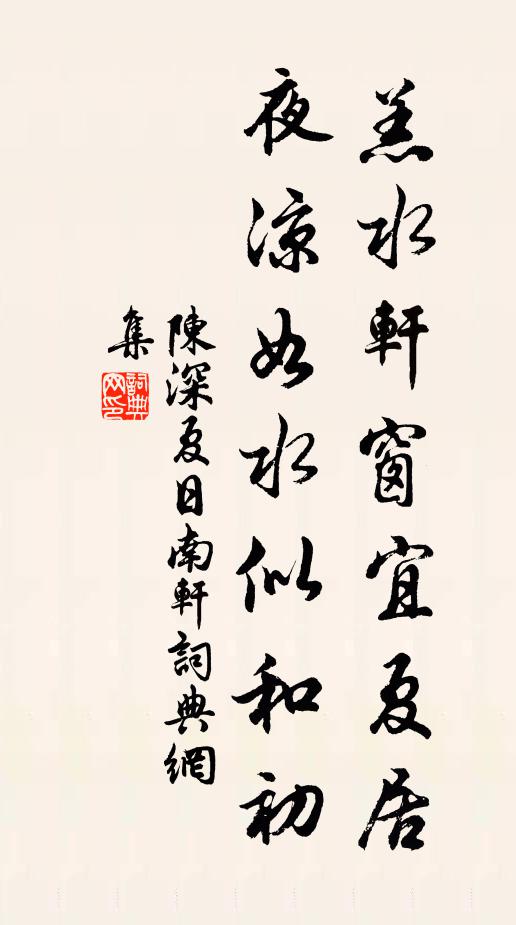 羔水軒窗宜夏居
夜涼如水似和初
陳深夏日南軒詞典網
集
詞典
网印